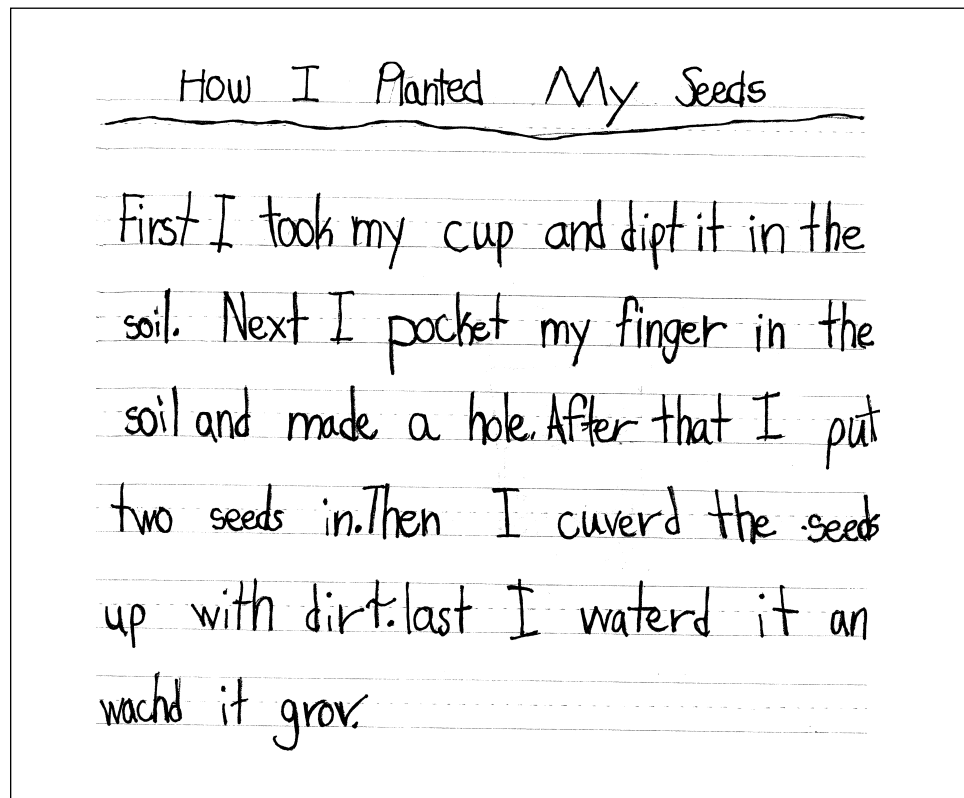 How I Planted My Seeds
First I took my cup and dipt it in the
soil. Next I pocket my finger in the
soil and made a hole. After that I put
two seeds in. Then I cuverd the seeds
up with dirt. last I waterd it an
wachd it grov.